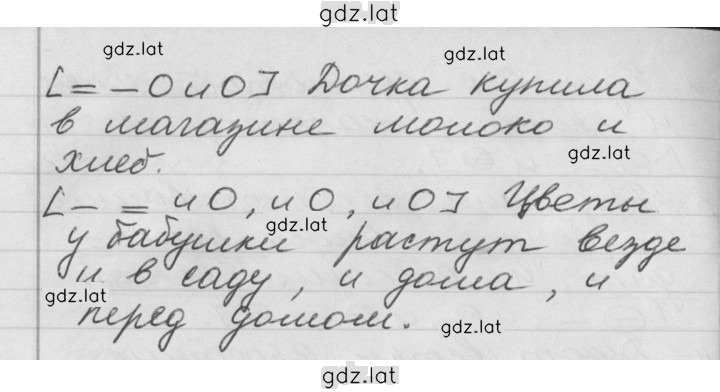 gdz.lat
gdz.lat
gdz.lat
[= – О и О] Дочка купила
в магазине молоко и
gdz.lat
хлеб.
[– = и О, и О, и О] Цветы
gdz.lat
у бабушки растут везде
и в саду, и дома, и
gdz.lat
перед домом.
gdz.lat
gdz.lat